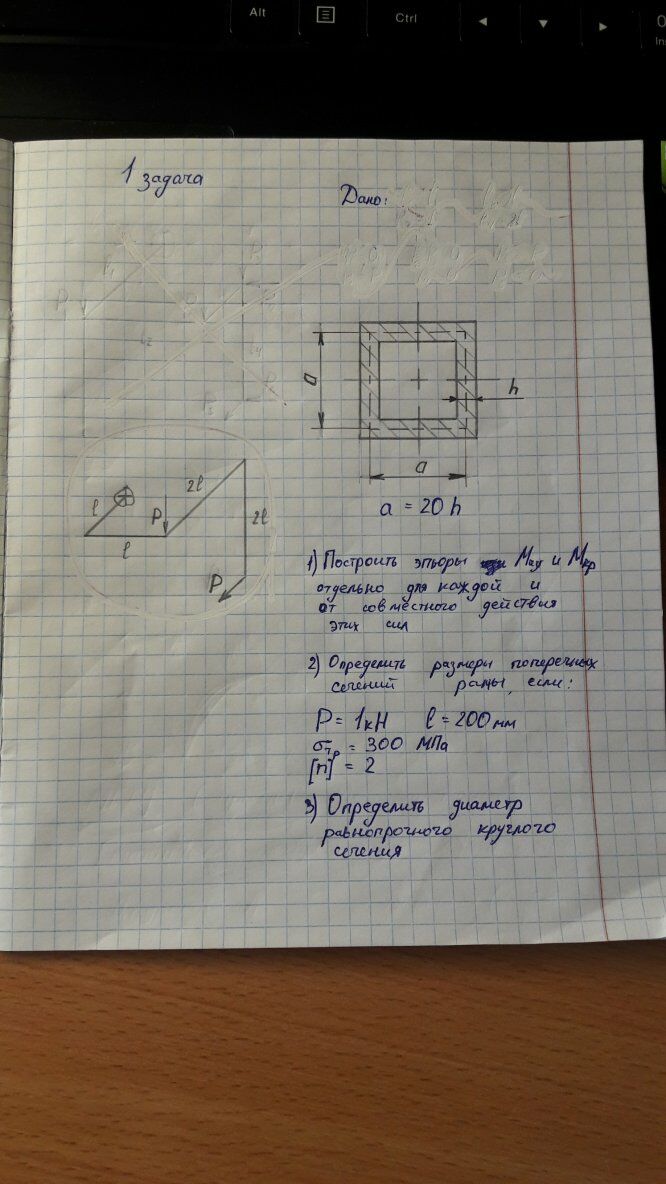 Alt
Ctrl
1 задача
Дано:
a
h
a
a = 20 h
l
l
P
2l
2l
P
1) Построить эпюры Mиз и Mкр
отдельно для каждой и
от совместного действия
этих сил
2) Определить размеры поперечных
сечений рамы, если:
P = 1кН l = 200 мм
σтр = 300 МПа
[n] = 2
3) Определить диаметр
равнопрочного круглого
сечения